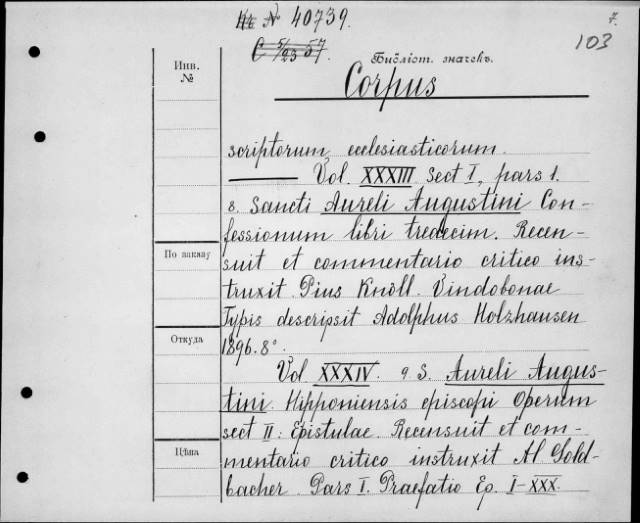 № 40739.
7.
103
C 5/23 57.
Инв.
№
Библіот. значекъ.
Corpus
scriptorum ecclesiasticorum.
Vol. XXXIII Sect I, pars 1.
8. Sancti Aureli Augustini Con-
fessionum libri tredecim. Recen-
suit et commentario critico ins-
По заказу
truxit Pius Knöll. Vindobonae
Typis descripsit Adolphus Holzhausen
Откуда
1896. 8°.
Vol XXXIV. 9 S. Aureli Augus-
tini Hipponiensis episcopi Operum
sect II. Epistulae. Recensuit et com-
Цѣна
mentario critico instruxit Al Gold-
bacher. Pars I. Praefatio Ep. I-XXX